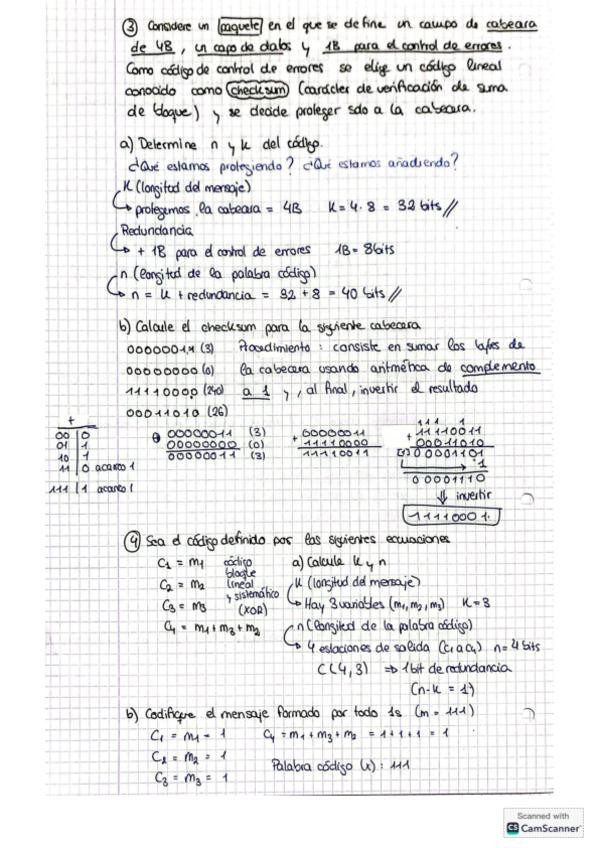 ③ Considere un paquete en el que se define un campo de cabecera
de 4B, un capo de datos y 1B para el control de errores.
Como código de control de errores se elige un código lineal
conocido como checksum (carácter de verificación de suma
de bloque) y se decide proteger solo a la cabecera.
a) Determine n y k del código.
¿Qué estamos protegiendo? ¿Qué estamos añadiendo?
K (longitud del mensaje)
protegemos la cabecera = 4B K = 4·8 = 32 bits //
Redundancia
+ 1B para el control de errores 1B = 8bits
n (longitud de la palabra código)
n = k + redundancia = 32 + 8 = 40 bits //
b) Calcule el checksum para la siguiente cabecera
00000011 (3) Procedimiento: consiste en sumar los bytes de
00000000 (0) la cabecera usando aritmética de complemento
11110000 (240) a 1 y, al final, invertir el resultado
00011010 (26)
+
00 | 0
01 | 1
10 | 1
11 | 0 acarreo 1
111 | 1 acarreo 1
00000011 (3)
00000000 (0)
00000011 (3)
+ 00000011
11110000
11110011
111 1
+ 11110011
00011010
(1) 00001101
1
00001110
⇓ invertir
11110001
④ Sea el código definido por las siguientes ecuaciones
C1 = m1
C2 = m2
C3 = m3
C4 = m1 + m3 + m2
código
bloque
lineal
y sistemático
(XOR)
a) Calcule k y n
K (longitud del mensaje)
Hay 3 variables (m1, m2, m3) K = 3
n (longitud de la palabra código)
4 estaciones de salida (c1 a c4) n = 4 bits
C(4,3) ⇒ 1 bit de redundancia
(n-k = 1)
b) Codifique el mensaje formado por todo 1s (m = 111)
C1 = m1 = 1 C4 = m1 + m3 + m2 = 1+1+1 = 1
C2 = m2 = 1
C3 = m3 = 1
Palabra código (x): 111
Scanned with
CS CamScanner